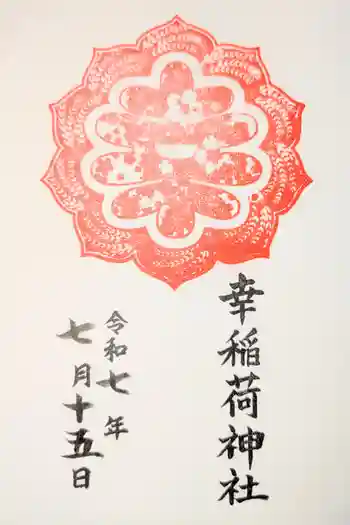 幸稲荷神社
令和七年
七月十五日